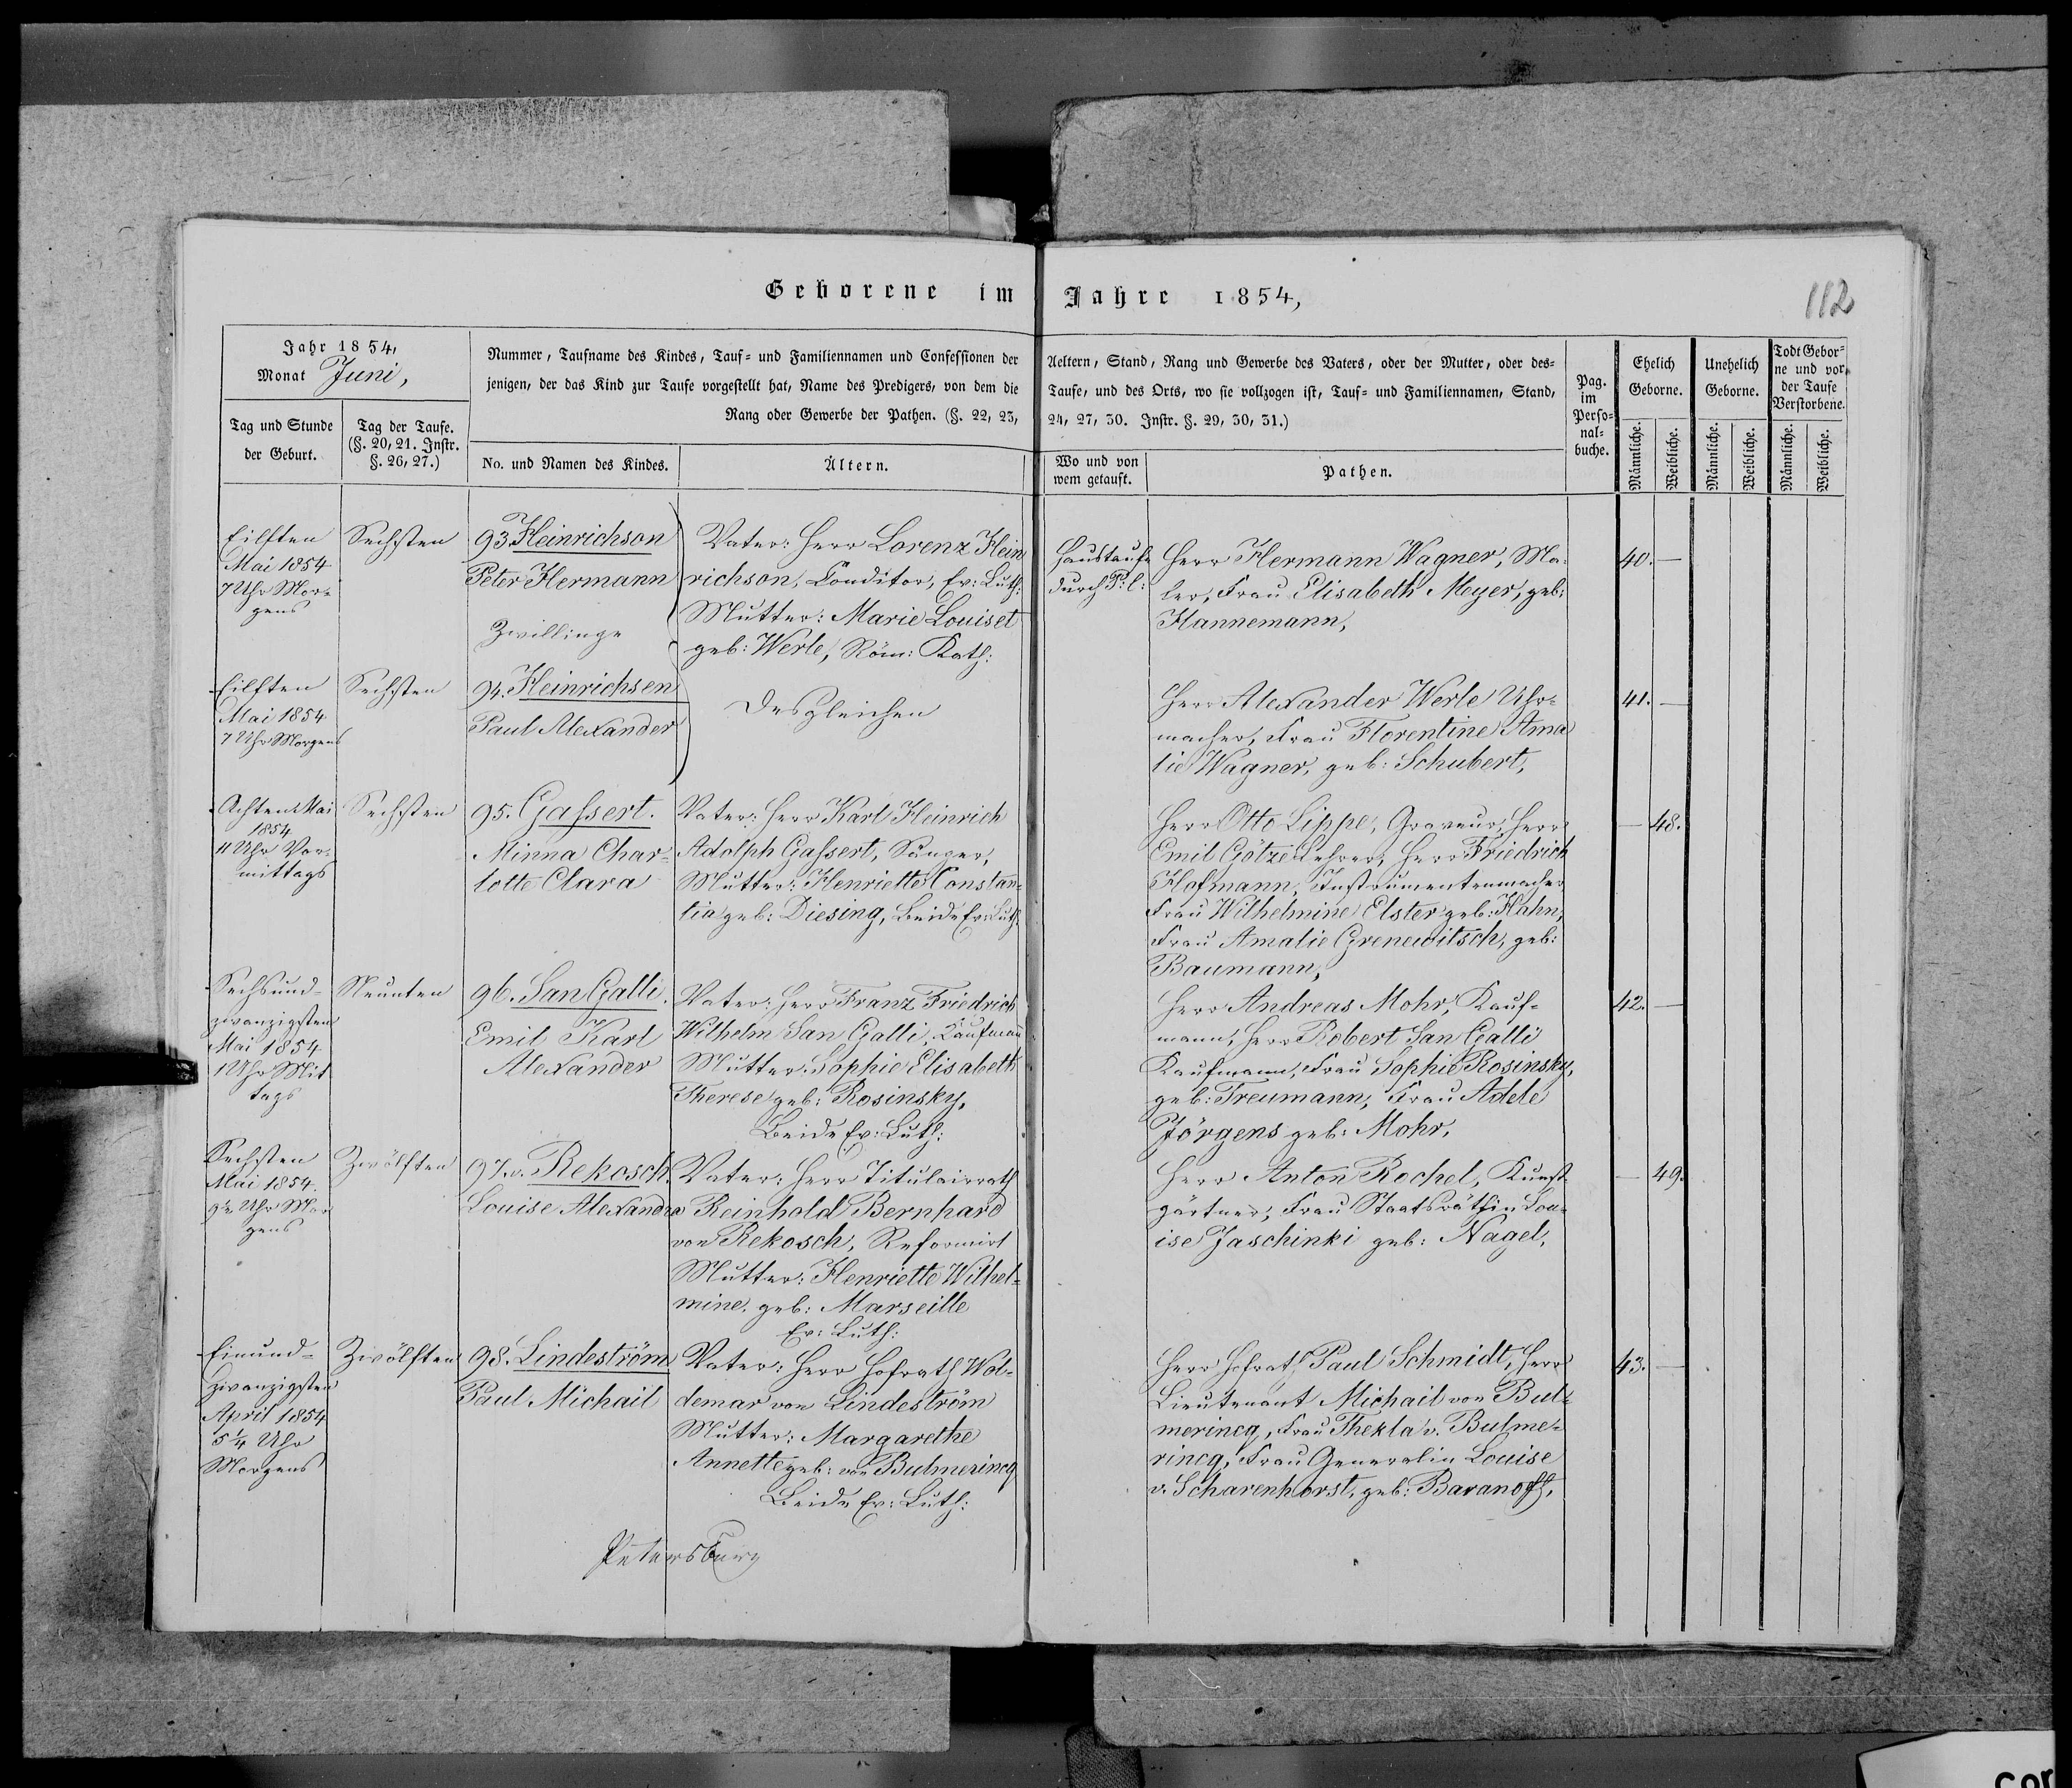 Geborene im Jahre 1854,
112
Jahr 1854,
Monat Juni,
Tag und Stunde
der Geburt.
Tag der Taufe.
(§. 20, 21. Instr.
§. 26, 27.)
Nummer, Taufname des Kindes, Tauf- und Familiennamen und Confessionen der
jenigen, der das Kind zur Taufe vorgestellt hat, Name des Predigers, von dem die
Rang oder Gewerbe der Pathen. (§. 22, 23,
No. und Namen des Kindes.
Ältern.
Aeltern, Stand, Rang und Gewerbe des Vaters, oder der Mutter, oder des-
Taufe, und des Orts, wo sie vollzogen ist, Tauf- und Familiennamen, Stand,
24, 27, 30. Instr. §. 29, 30, 31.)
Wo und von
wem getauft.
Pathen.
Pag.
im
Perso-
nal-
buche.
Ehelich
Geborne.
Unehelich
Geborne.
Todt Gebor-
ne und vor
der Taufe
Verstorbene.
Männliche.
Weibliche.
Männliche.
Weibliche.
Männliche.
Weibliche.
Eilften
Mai 1854
7 Uhr Mor-
gens
Sechsten
93. Heinrichson
Peter Hermann
Zwillinge
Vater: Herr Lorenz Hein
richson, Conditor, Ev: Luth:
Mutter: Marie Louise
geb: Werle, Röm: Kath:
Haustaufe
durch P: C:
Herr Hermann Wagner, Ma-
ler, Frau Elisabeth Meyer, geb:
Hannemann,
40. —
Eilften
Mai 1854
7 Uhr Morgens
Sechsten
94. Heinrichsen
Paul Alexander
Desgleichen
Herr Alexander Werle Uhr-
macher, Frau Florentine Ama
lie Wagner, geb: Schubert,
41. —
Achten Mai
1854
11 Uhr Vor-
mittags
Sechsten
95. Gassert.
Minna Char-
lotte Clara
Vater: Herr Karl Heinrich
Adolph Gassert, Sänger,
Mutter: Henriette Constan-
tia geb: Diesing, Beide Ev: Luth:
Herr Otto Lippe, Graveur, Herr
Emil Götze Lehrer, Herr Friedrich
Hofmann, Instrumentenmacher
Frau Wilhelmine Elster geb: Hahn,
Frau Amalie Grenewitsch, geb:
Baumann,
— 48.
Sechsund-
zwanzigsten
Mai 1854
1 Uhr Mit
tags
Neunten
96. San Galli.
Emil Karl
Alexander
Vater: Herr Franz Friedrich
Wilhelm San Galli, Kaufmann
Mutter: Sophie Elisabeth
Therese geb: Rosinsky,
Beide Ev: Luth:
Herr Andreas Mohr, Kauf-
mann, Herr Robert San Galli
Kaufmann, Frau Sophie Rosinsky,
geb: Treumann, Frau Adele
Jörgens geb: Mohr,
42. —
Sechsten
Mai 1854.
9½ Uhr Mor
gens
Zwölften
97. v. Rekosch.
Louise Alexandra
Vater: Herr Titulairrath
Reinhold Bernhard
von Rekosch, Reformirt
Mutter: Henriette Wilhel-
mine. geb: Marseille
Ev: Luth:
Herr Anton Rochel, Kunst
gärtner, Frau Staatsräthin Lou-
ise Jaschinki geb: Nagel,
— 49.
Einund-
zwanzigsten
April 1854
5¼ Uhr
Morgens
Zwölften
98. Lindeström
Paul Michail
Vater: Herr Hofrath Wol-
demar von Lindeström
Mutter: Margarethe
Annette geb: von Bulmerincq
Beide Ev: Luth:
Herr Hofrath Paul Schmidt, Herr
Lieutenant Michail von Bul-
merincq, Frau Thekla v. Bulme-
rincq, Frau Generalin Louise
v. Scharenhorst, geb: Baranoff,
43. —
Petersburg